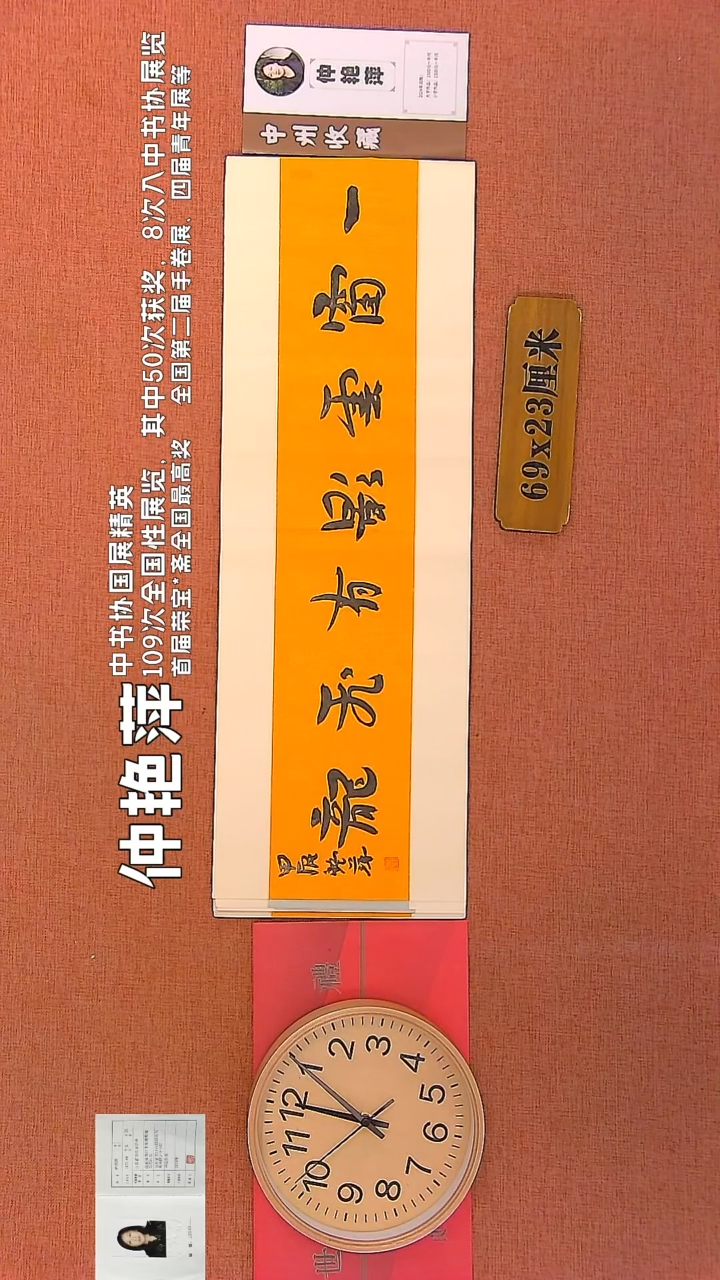 仲艳萍
中书协国展精英
109次全国性展览，其中50次获奖，8次入中书协展览
首届荣宝*斋全国最高奖、全国第二届手卷展、四届青年展等
仲艳萍
中州收藏
一窗雲影有龍
甲辰 艳萍
69x23厘米
禮
世
12
1
2
3
4
5
6
7
8
9
10
11